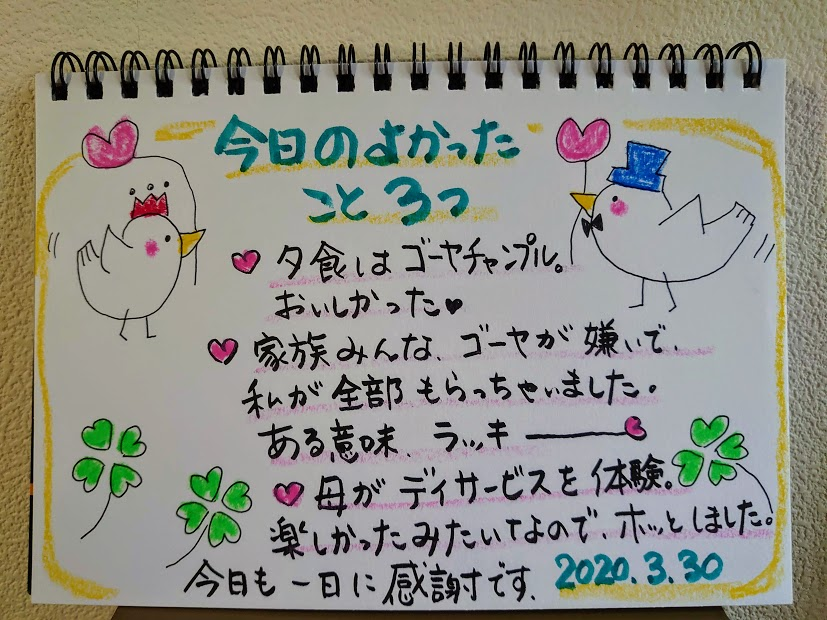 今日のよかった
こと3つ
夕食はゴーヤチャンプル。
おいしかった♥
家族みんな、ゴーヤが嫌いで、
私が全部もらっちゃいました。
ある意味、ラッキー
母がデイサービスを体験。
楽しかったみたいなので、ホッとしました。
今日も一日に感謝です、
2020.3.30